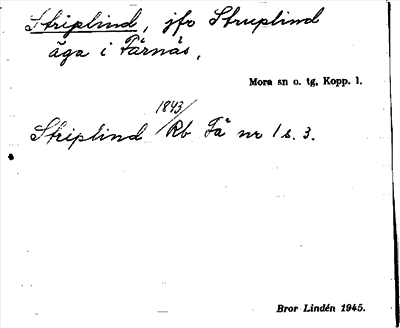 Striplind, jfo Struplind
äga i Färnäs.
Mora sn o. tg, Kopp. l.
1843/
Striplind Rb Fä nr 1 s. 3.
Bror Lindén 1945.